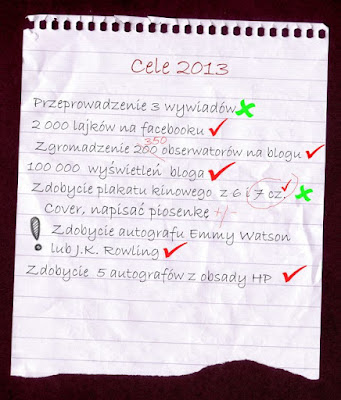 Cele 2013
Przeprowadzenie 3 wywiadów
2 000 lajków na facebooku
350
Zgromadzenie 200 obserwatorów na blogu
100 000 wyświetleń bloga
Zdobycie plakatu kinowego z 6 i 7 cz.
Cover, napisać piosenke +/-
! Zdobycie autografu Emmy Watson
lub J.K. Rowling
Zdobycie 5 autografów z obsady HP